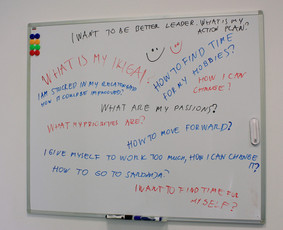 I WANT TO BE BETTER LEADER. WHAT IS MY
ACTION PLAN?
WHAT IS MY IKIGAI?
HOW TO FIND TIME
FOR MY HOBBIES?
I AM STUCKED IN MY RELATIONSHIP
HOW IT COULD BE IMPROVED?
HOW I CAN
CHANGE?
WHAT ARE MY PASSIONS?
WHAT MY PRIORITIES ARE?
HOW TO MOVE FORWARD?
I GIVE MYSELF TO WORK TOO MUCH, HOW I CAN CHANGE
IT?
HOW TO GO TO
I WANT TO FIND TIME FOR
MYSELF?